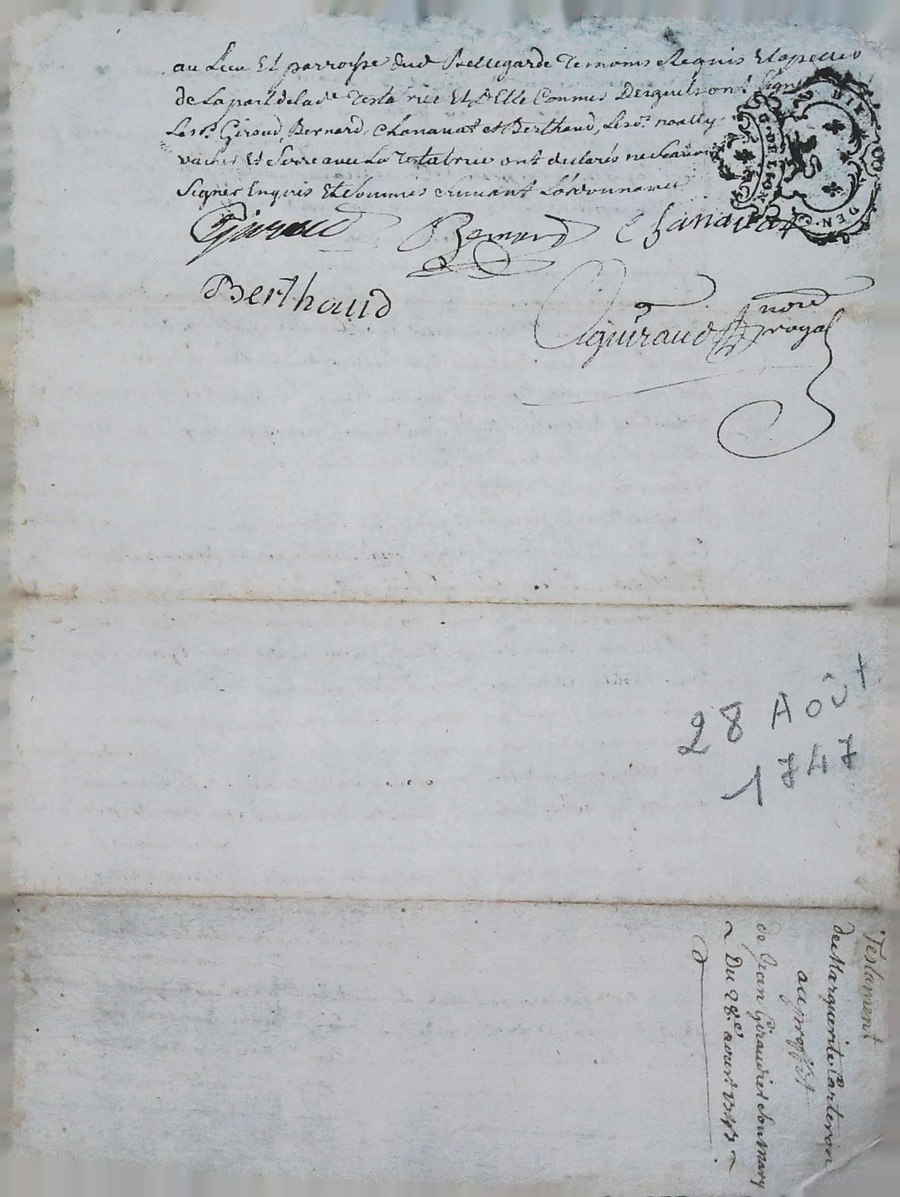 au Lieu Et parroisse dud Bellegarde Temoins Requis Et apelleo
de La part de lad.e Testatrice Et d'Elle Connus Desquels ont signe
Les s.rs Giroud, Bernard, Chanavat et Berthaud, Les s.rs noally
vacher Et avec La Testatrice ont declarés ne scavoir
Signer Enquis Et Sommés suivant L'ordonnance
Giroud Bernard Chanavat
Berthaud
Aguiraud nore
royal
G. DE LYON
GEN.
28 Août
1747
Testament
de Marguerite Carteron
au proffit
de Jean Giraudier Son Mary
Du 28.e aoust 1747